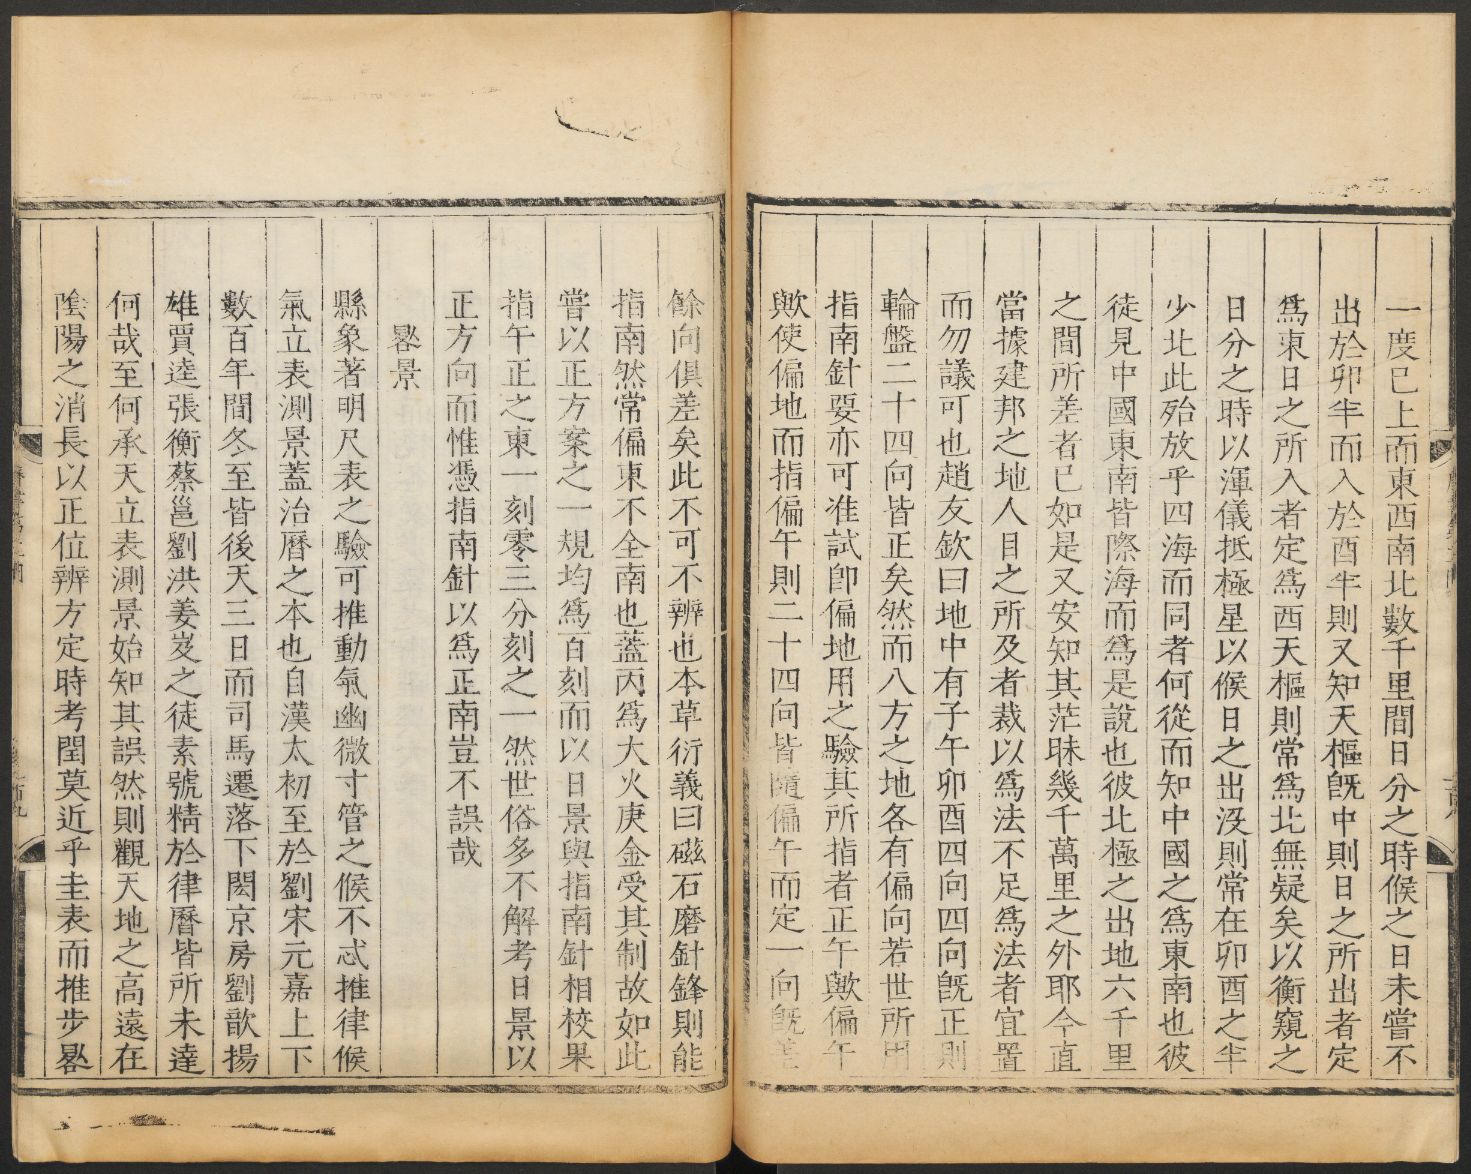 一度已上而東西南北數千里間日分之時候之日未嘗不
出於卯半而入於酉半則又知天樞旣中則日之所出者定
爲東日之所入者定爲西天樞則常爲北無疑矣以衡窺之
日分之時以渾儀抵極星以候日之出沒則常在卯酉之半
少北此殆放乎四海而同者何從而知中國之爲東南也彼
徒見中國東南皆際海而爲是說也彼北極之出地六千里
之間所差者已如是又安知其茫昧幾千萬里之外耶今直
當據建邦之地人目之所及者裁以爲法不足爲法者宜置
而勿議可也趙友欽曰地中有子午卯酉四向四向旣正則
輪盤二十四向皆正矣然而八方之地各有偏向若世所用
指南針要亦可准試卽偏地用之驗其所指者正午歟偏午
歟使偏地而指偏午則二十四向皆隨偏午而定一向旣差
餘向俱差矣此不可不辨也本草衍義曰磁石磨針鋒則能
指南然常偏東不全南也蓋丙爲大火庚金受其制故如此
嘗以正方案之一規均爲百刻而以日景與指南針相校果
指午正之東一刻零三分刻之一然世俗多不解考日景以
正方向而惟憑指南針以爲正南豈不誤哉
晷景
縣象著明尺表之驗可推動氣幽微寸管之候不忒推律候
氣立表測景蓋治曆之本也自漢太初至於劉宋元嘉上下
數百年間冬至皆後天三日而司馬遷落下閎京房劉歆揚
雄賈逵張衡蔡邕劉洪姜岌之徒素號精於律曆皆所未達
何哉至何承天立表測景始知其誤然則觀天地之高遠在
陰陽之消長以正位辨方定時考閏莫近乎圭表而推步晷